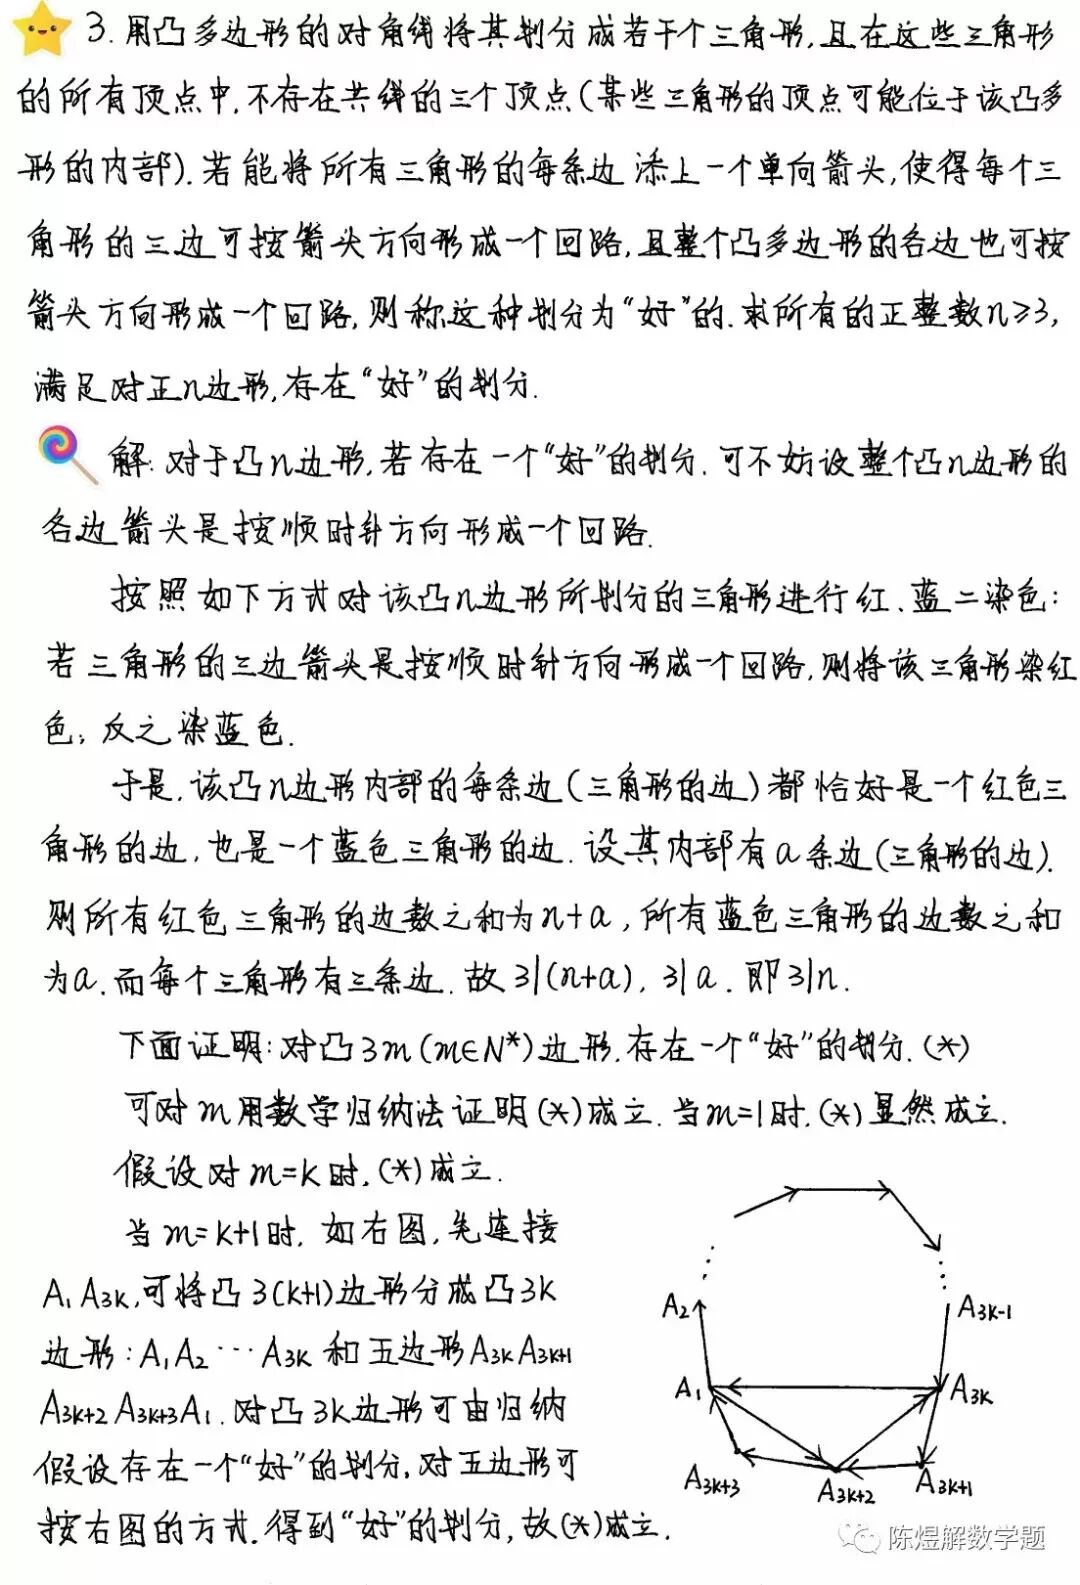 3. 用凸多边形的对角线将其划分成若干个三角形,且在这些三角形
的所有顶点中,不存在共线的三个顶点(某些三角形的顶点可能位于该凸多
形的内部).若能将所有三角形的每条边添上一个单向箭头,使得每个三
角形的三边可按箭头方向形成一个回路,且整个凸多边形的各边也可按
箭头方向形成一个回路,则称这种划分为“好”的.求所有的正整数n≥3,
满足对正n边形,存在“好”的划分.
解:对于凸n边形,若存在一个“好”的划分.可不妨设整个凸n边形的
各边箭头是按顺时针方向形成一个回路.
按照如下方式对该凸n边形所划分的三角形进行红、蓝二染色:
若三角形的三边箭头是按顺时针方向形成一个回路,则将该三角形染红
色;反之染蓝色.
于是,该凸n边形内部的每条边(三角形的边)都恰好是一个红色三
角形的边,也是一个蓝色三角形的边.设其内部有a条边(三角形的边).
则所有红色三角形的边数之和为n+a,所有蓝色三角形的边数之和
为a.而每个三角形有三条边.故3|(n+a),3|a.即3|n.
下面证明:对凸3m(m∈N*)边形.存在一个“好”的划分.(*)
可对m用数学归纳法证明(*)成立.当m=1时.(*)显然成立.
假设对m=k时,(*)成立.
当m=k+1时,如右图,先连接
A₁A3k,可将凸3(k+1)边形分成凸3k
边形:A₁A₂⋯A3k和五边形A3kA3k+1
A3k+2A3k+3A₁.对凸3k边形可由归纳
假设存在一个“好”的划分,对五边形可
按右图的方式.得到“好”的划分,故(*)成立.
A₂
A3k-1
A₁
A3k
A3k+3
A3k+2
A3k+1
陈煜解数学题